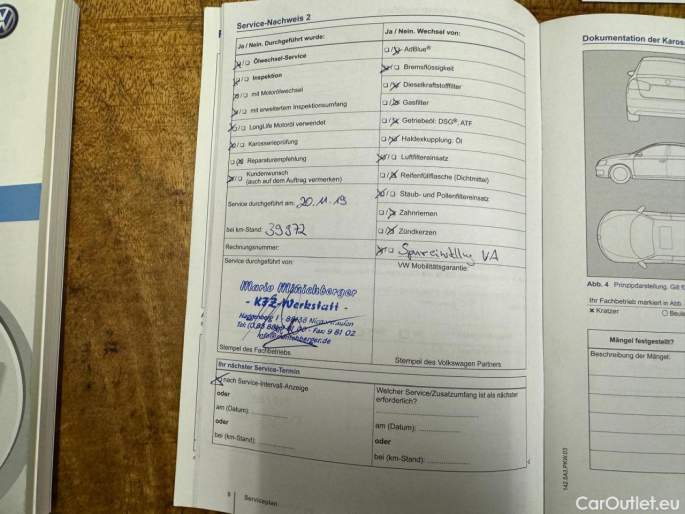 Service-Nachweis 2
Ja / Nein. Durchgeführt wurde:
Ölwechsel-Service
Inspektion
mit Motorölwechsel
mit erweitertem Inspektionsumfang
LongLife Motoröl verwendet
Karosserieprüfung
Reparaturempfehlung
Kundenwunsch
(auch auf dem Auftrag vermerken)
Service durchgeführt am: 20.11.19
bei km-Stand: 39372
Rechnungsnummer:
Service durchgeführt von:
Mario
- KFZ-Werkstatt -
Stempel des Fachbetriebs
Ja / Nein. Wechsel von:
AdBlue®
Bremsflüssigkeit
Dieselkraftstofffilter
Gasfilter
Getriebeöl: DSG®, ATF
Haldexkupplung: Öl
Luftfiltereinsatz
Reifenfüllflasche (Dichtmittel)
Staub- und Pollenfiltereinsatz
Zahnriemen
Zündkerzen
VA
VW Mobilitätsgarantie:
Stempel des Volkswagen Partners
Ihr nächster Service-Termin
nach Service-Intervall-Anzeige
oder
am (Datum):
oder
bei (km-Stand):
Welcher Service/Zusatzumfang ist als nächster
erforderlich?
am (Datum):
oder
bei (km-Stand):
Serviceplan
Dokumentation der Kaross
Abb. 4 Prinzipdarstellung. Gilt f
Ihr Fachbetrieb markiert in Abb.
x Kratzer
Mängel festgestellt?
Beschreibung der Mängel:
CarOutlet.eu